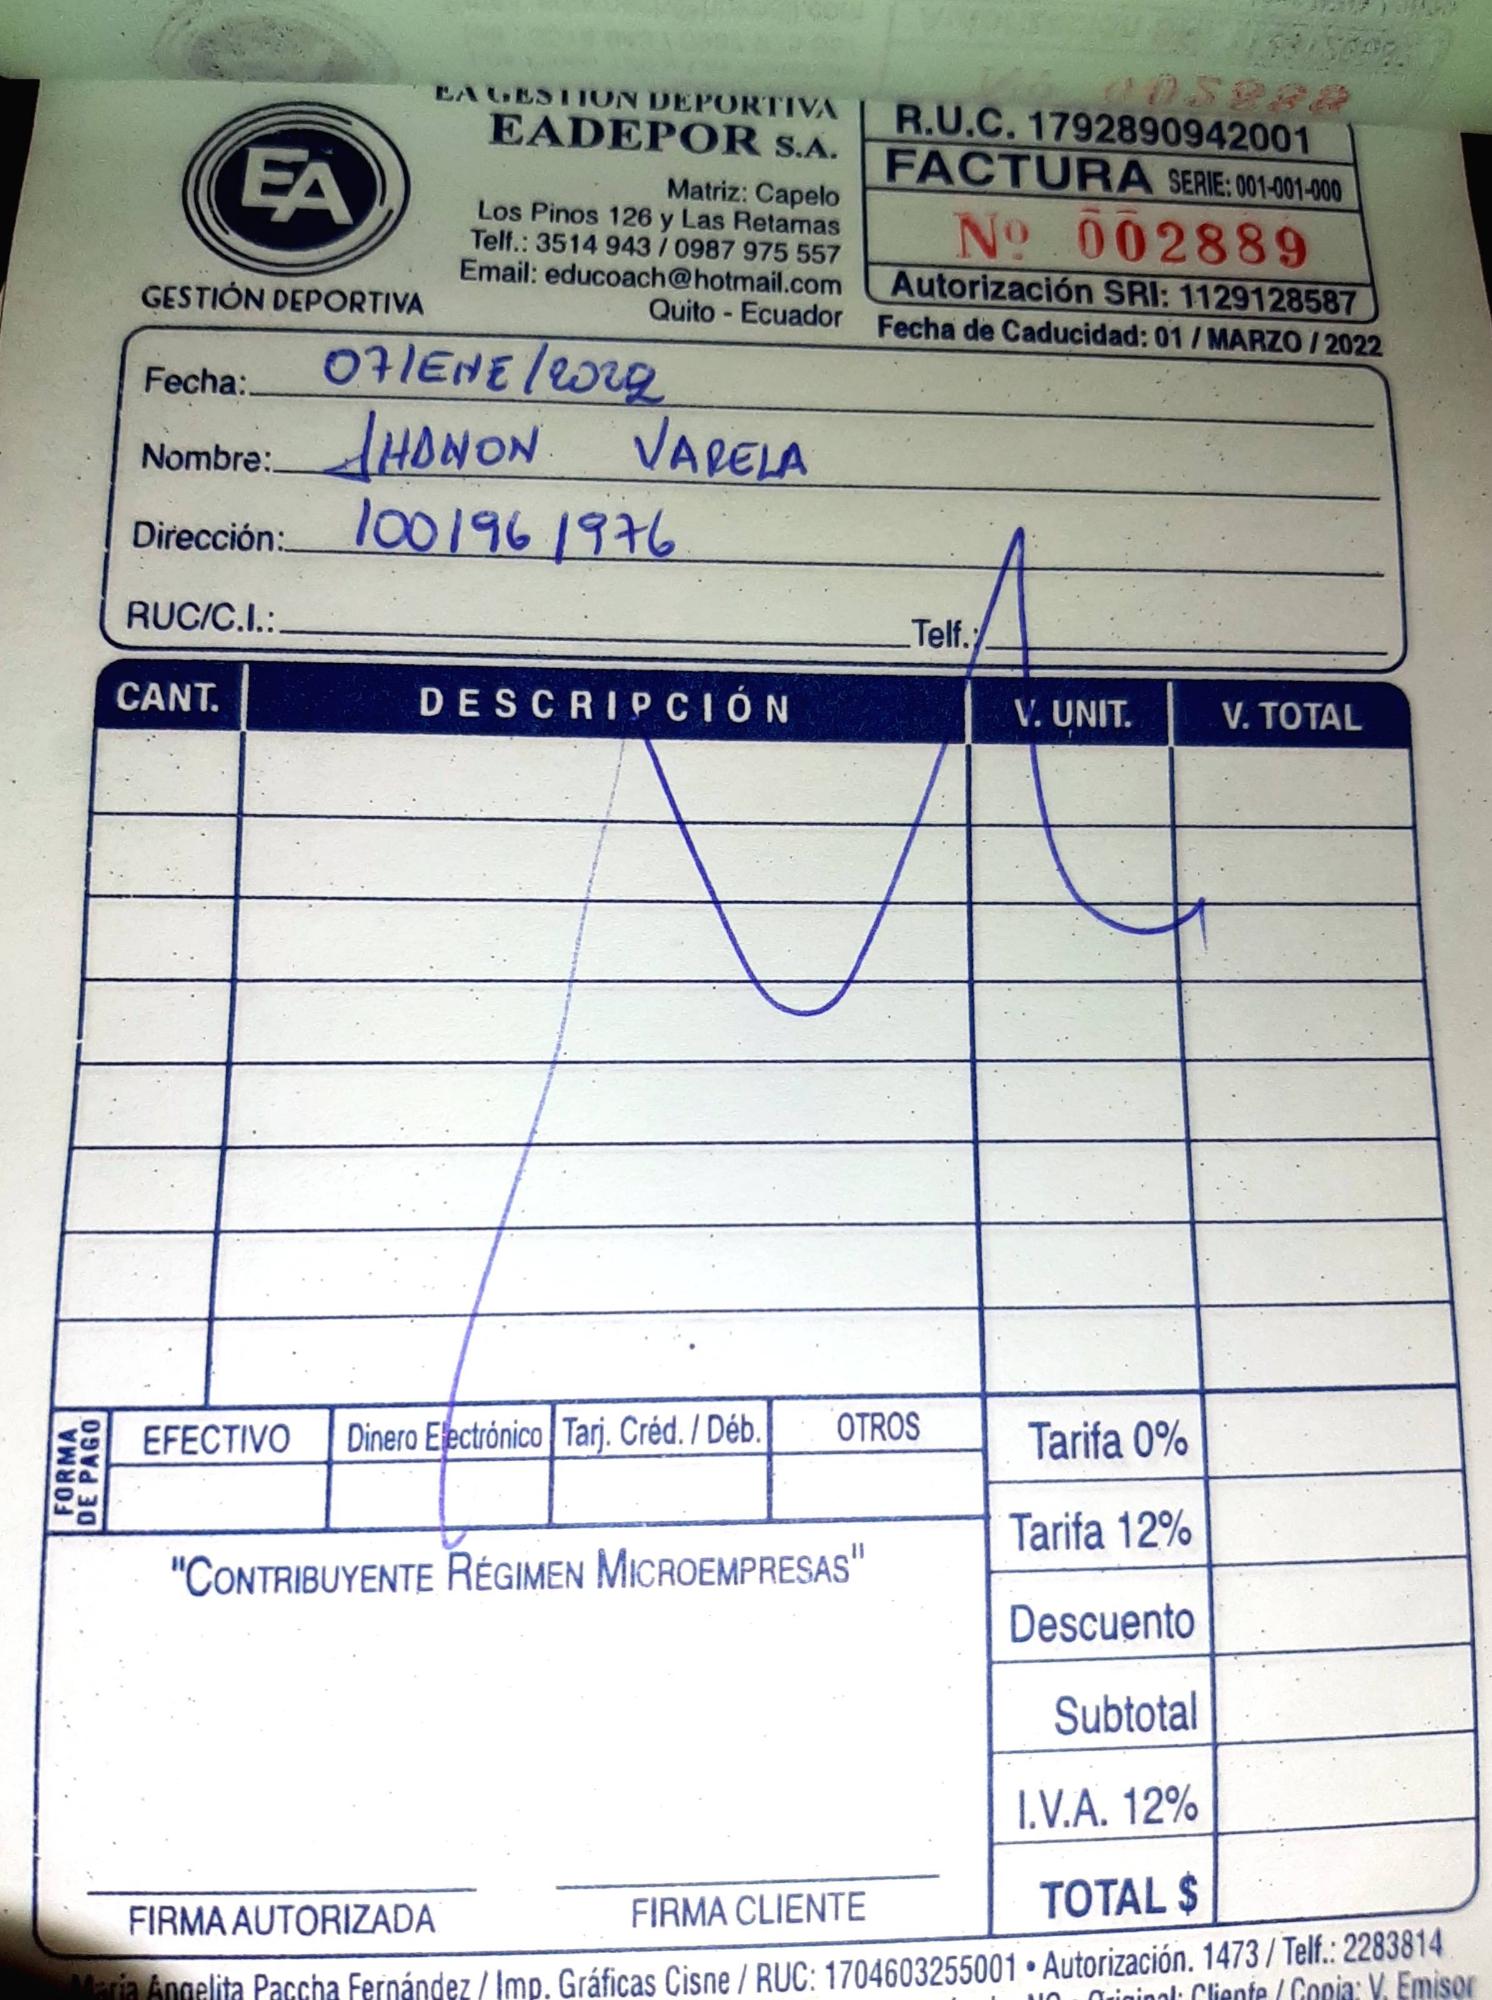 EA GESTIÓN DEPORTIVA
EADEPOR S.A.
EA
GESTIÓN DEPORTIVA
Matriz: Capelo
Los Pinos 126 y Las Retamas
Telf.: 3514 943 / 0987 975 557
Email: educoach@hotmail.com
Quito - Ecuador
R.U.C. 1792890942001
FACTURA SERIE: 001-001-000
Nº 002889
Autorización SRI: 1129128587
Fecha de Caducidad: 01 / MARZO / 2022
Fecha: 07/ENE/2022
Nombre: JHONON VARELA
Dirección: 1001961976
RUC/C.I.: Telf.:
CANT. DESCRIPCIÓN V. UNIT. V. TOTAL
FORMA DE PAGO
EFECTIVO Dinero Electrónico Tarj. Créd. / Déb. OTROS
Tarifa 0%
Tarifa 12%
"CONTRIBUYENTE RÉGIMEN MICROEMPRESAS"
Descuento
Subtotal
I.V.A. 12%
TOTAL $
FIRMA AUTORIZADA FIRMA CLIENTE
María Angelita Paccha Fernández / Imp. Gráficas Cisne / RUC: 1704603255001 • Autorización. 1473 / Telf.: 2283814
Original: Cliente / Copia: V. Emisor